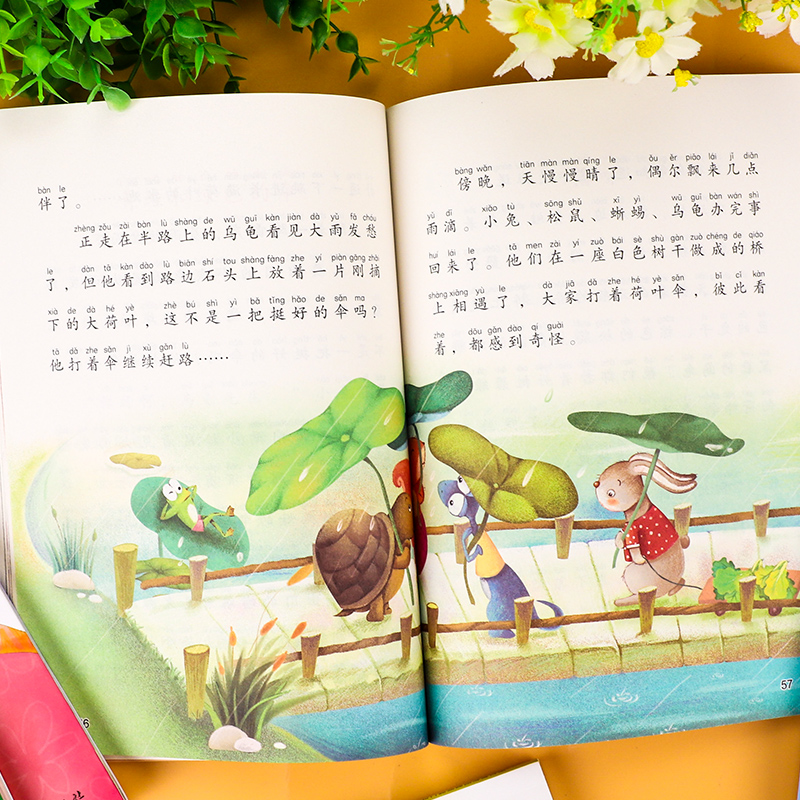 bàn le
伴了。
zhèng zǒu zài bàn lù shàng de wū guī kàn jiàn dà yǔ fā chóu
正走在半路上的乌龟看见大雨发愁
le dàn tā kàn dào lù biān shí tou shàng fàng zhe yí piàn gāng zhāi
了，但他看到路边石头上放着一片刚摘
xià de dà hé yè zhè bú shì yì bǎ tǐng hǎo de sǎn ma
下的大荷叶，这不是一把挺好的伞吗？
tā dǎ zhe sǎn jì xù gǎn lù
他打着伞继续赶路……
bàng wǎn tiān màn màn qíng le ǒu ěr piāo lái jǐ diǎn
傍晚，天慢慢晴了，偶尔飘来几点
yǔ dī xiǎo tù sōng shǔ xī yì wū guī bàn wán shì
雨滴。小兔、松鼠、蜥蜴、乌龟办完事
huí lái le tā men zài yí zuò bái sè shù gàn zuò chéng de qiáo
回来了。他们在一座白色树干做成的桥
shàng xiāng yù le dà jiā dǎ zhe hé yè sǎn bǐ cǐ kàn
上相遇了，大家打着荷叶伞，彼此看
zhe dōu gǎn dào qí guài
着，都感到奇怪。
57